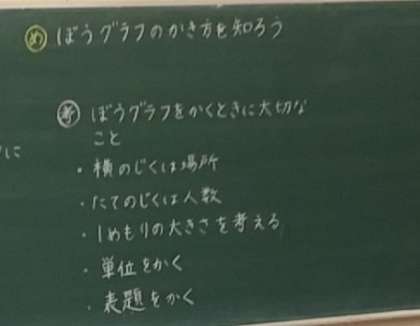 め ぼうグラフのかき方を知ろう
考 ぼうグラフをかくときに大切な
こと
に
・横のじくは場所
・たてのじくは人数
・1めもりの大きさを考える
・単位をかく
・表題をかく